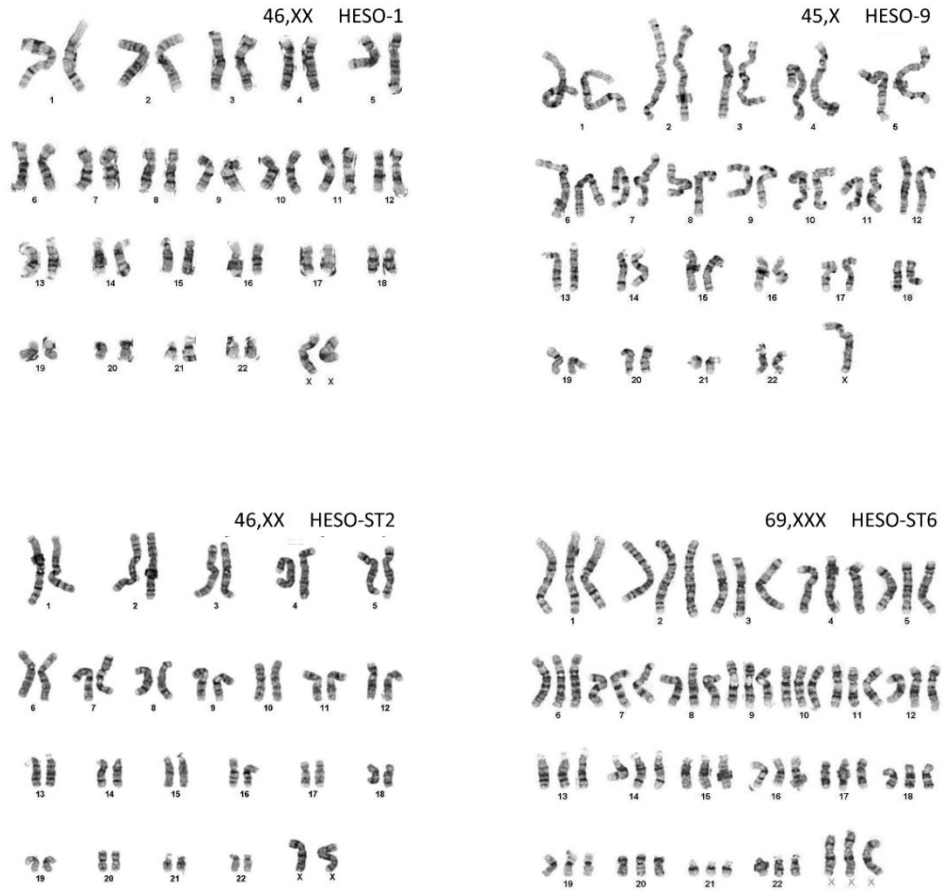 46,XX HESO-1
1 2 3 4 5
6 7 8 9 10 11 12
13 14 15 16 17 18
19 20 21 22 X X
45,X HESO-9
1 2 3 4 5
6 7 8 9 10 11 12
13 14 15 16 17 18
19 20 21 22 X
46,XX HESO-ST2
1 2 3 4 5
6 7 8 9 10 11 12
13 14 15 16 17 18
19 20 21 22 X X
69,XXX HESO-ST6
1 2 3 4 5
6 7 8 9 10 11 12
13 14 15 16 17 18
19 20 21 22 X X X